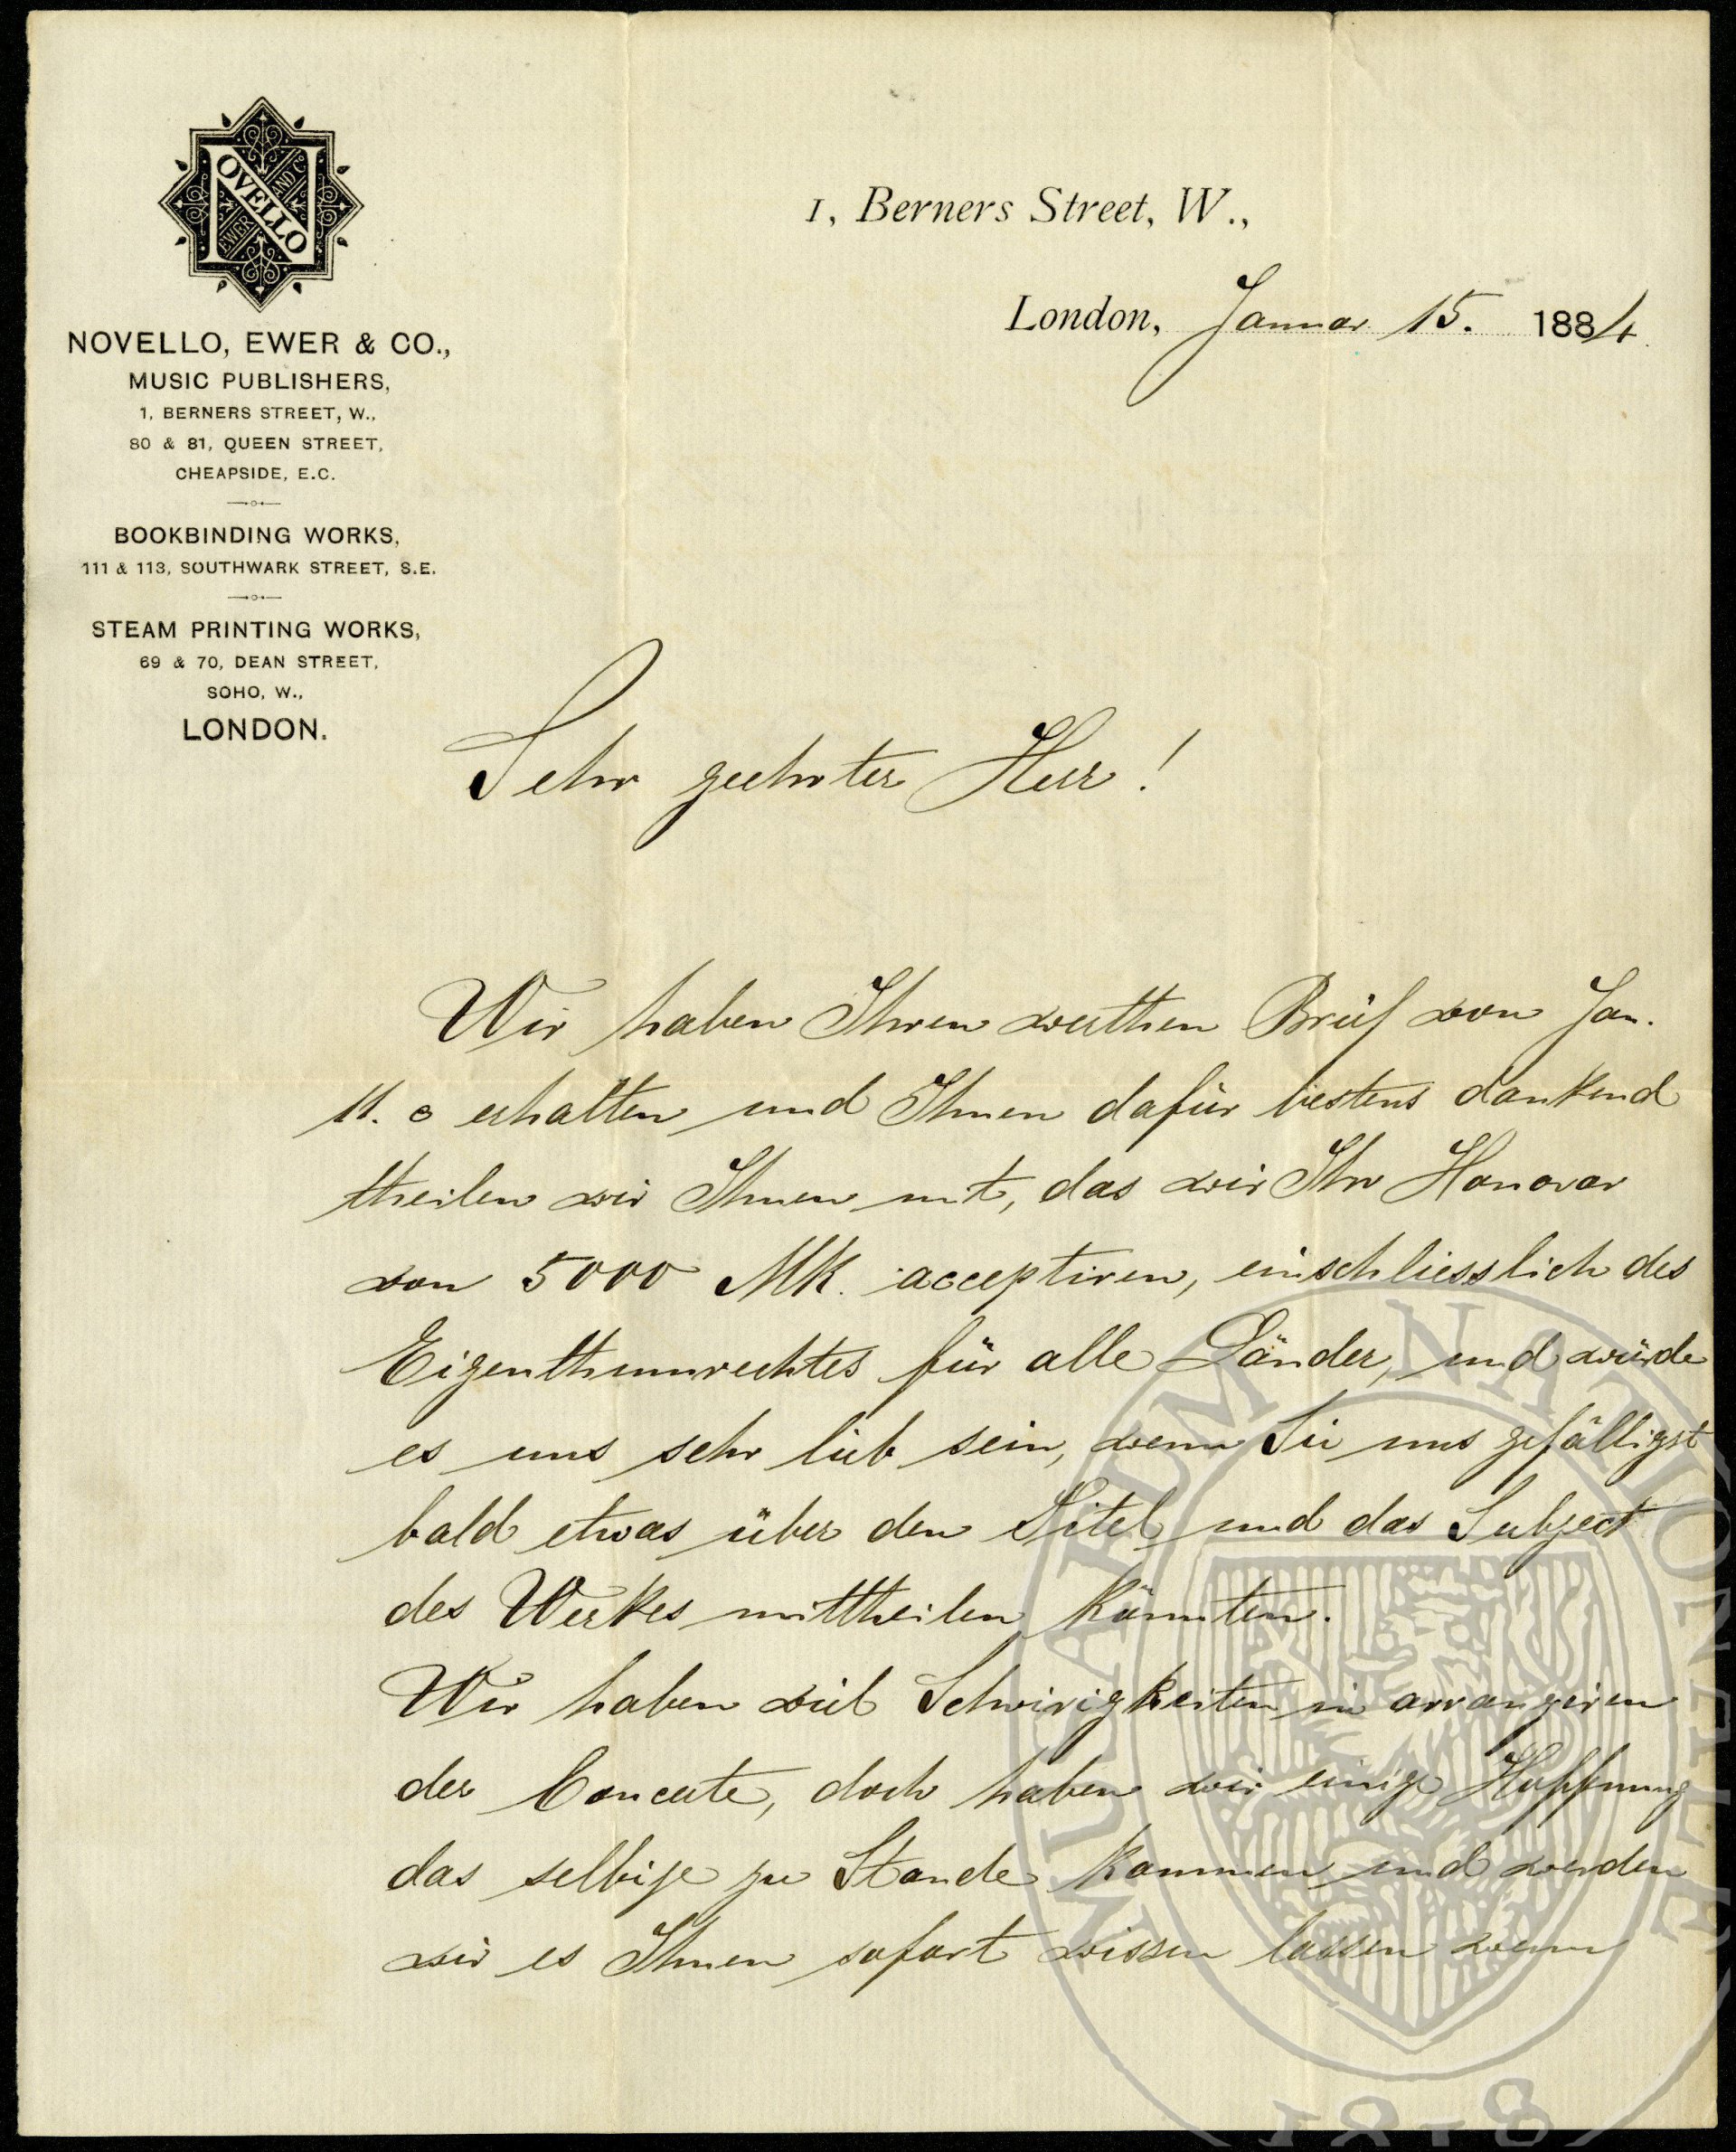 NOVELLO
EWER AND Co
NOVELLO, EWER & CO.,
MUSIC PUBLISHERS,
1, BERNERS STREET, W.,
80 & 81, QUEEN STREET,
CHEAPSIDE, E.C.
BOOKBINDING WORKS,
111 & 113, SOUTHWARK STREET, S.E.
STEAM PRINTING WORKS,
69 & 70, DEAN STREET,
SOHO, W.,
LONDON.
1, Berners Street, W.,
London, Januar 15. 1884
Sehr geehrter Herr!
Wir haben Ihren werthen Brief von Jan.
11. c erhalten und Ihnen dafür bestens dankend
theilen wir Ihnen mit, das wir Ihr Honorar
von 5000 Mk. acceptiren, einschliesslich des
Eigenthumrechtes für alle Länder, und würde
es uns sehr lieb sein, wenn Sie uns gefälligst
bald etwas über den Titel und das Subject
des Werkes mittheilen könnten.
Wir haben viel Schwirigkeiten in arrangiren
der Concerte, doch haben wir einige Hoffnung
das selbige zu Stande kommen und werden
wir es Ihnen sofort wissen lassen wenn
MUSAEUM NATIONALE
1818